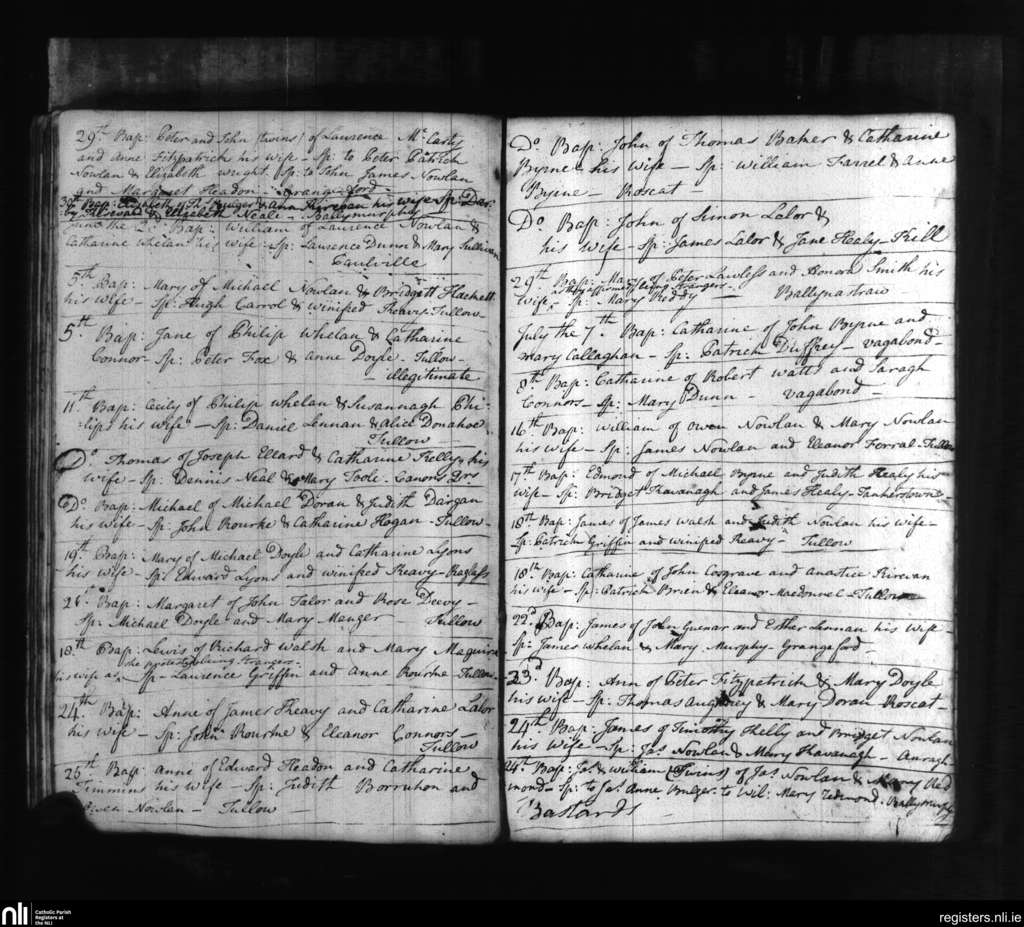 29th Bap: Peter and John (twins) of Laurence Mc Carty
and Anne Fitzpatrick his wife - Sp: to Peter Patrick
Nowlan & Elizabeth Wright. Sp: to John James Nowlan
and Margaret Headon - Grange ford -
30th Bap: Elizabeth of & Ann Kirevan his wife Sp:
by & Elizabeth Neale - Ballymurphy
June the 2d Bap: William of Laurence Nowlan &
Catharine Whelan his wife - Sp: Laurence Dunne & Mary Sullivan
Caulville
5th Bap: Mary of Michael Nowlan & Bridgett Hackett
his wife - Sp: Hugh Carrol & Winifred Heavy - Tullow -
5th Bap: Jane of Philip Whelan & Catharine
Connor - Sp: Peter Fox & Anne Doyle. Tullow -
- illegitimate
11th Bap: Cecily of Philip Whelan & Susannagh Phi-
lips his wife - Sp: Daniel Lennan & Alice Donahoe
Tullow -
Do Thomas of Joseph Ellard & Catharine Kelly his
wife - Sp: Dennis Neal & Mary Toole. Canons Qrs
Do Bap: Michael of Michael Doran & Judith Dargan
his wife - Sp: John Rourke & Catharine Hogan - Tullow -
19th Bap: Mary of Michael Doyle and Catharine Lyons
his wife - Sp: Edward Lyons and Winifred Heavy - Raglass
21st Bap: Margaret of John Talor and Rose Deevy -
Sp: Michael Doyle and Mary Manger - Tullow
18th Bap: Lewis of Richard Walsh and Mary Maguire
being strangers -
his wife as Sp - Laurence Griffin and Anne Rourke Tullow -
24th Bap: Anne of James Heavy and Catharine Lalor
his wife - Sp: John Rourke & Eleanor Connors -
Tullow
25th Bap: Anne of Edward Headon and Catharine
Timmins his wife - Sp: Judith Borruhon and
Owen Nowlan - Tullow -
Do Bap: John of Thomas Baker & Catharine
Byrne his wife - Sp: William Farrel & Anne
Byrne - Roscat -
Do Bap: John of Simon Lalor &
his wife - Sp: James Lalor & Jane Healy - Kill
29th Bap: Mary of Peter Lawless and Honora Smith his
being strangers -
wife - Sp: Mary Reddy - Ballynastraw
July the 7th Bap: Catharine of John Byrne and
Mary Callaghan - Sp: Patrick Duffrey - vagabond -
8th Bap: Catharine of Robert Watts and Saragh
Connors - Sp: Mary Dunn - vagabond -
16th Bap: William of Owen Nowlan & Mary Nowlan
his wife - Sp: James Nowlan and Eleanor Forral - Tullow
17th Bap: Edmond of Michael Byrne and Judith Healy his
wife - Sp: Bridget Kavanagh and James Healy - Tankerstown -
18th Bap: James of James Walsh and Judith Nowlan his wife -
Sp: Patrick Griffin and Winifred Heavy - Tullow
18th Bap: Catharine of John Cosgrave and Anastice Kirevan
his wife - Sp: Patrick Brien & Eleanor Macdonnel - Tullow -
22d Bap: James of John Guenar and Esther Lennan his wife -
Sp: James Whelan & Mary Murphy - Grangeford -
23d Bap: Ann of Peter Fitzpatrick & Mary Doyle
his wife - Sp: Thomas Aughney & Mary Doran - Roscat -
24th Bap: James of Timothy Kelly and Bridget Nowlan
his wife - Sp: Jas Nowlan & Mary Kavanagh - Anragh
24th Bap: Jas & William (Twins) of Jas Nowlan & Mary Red
mond - Sp: to Jas Anne Bulger. to Wil: Mary Redmond. Ballymurphy
Bastards
nli
Catholic Parish
Registers at
the NLI
registers.nli.ie